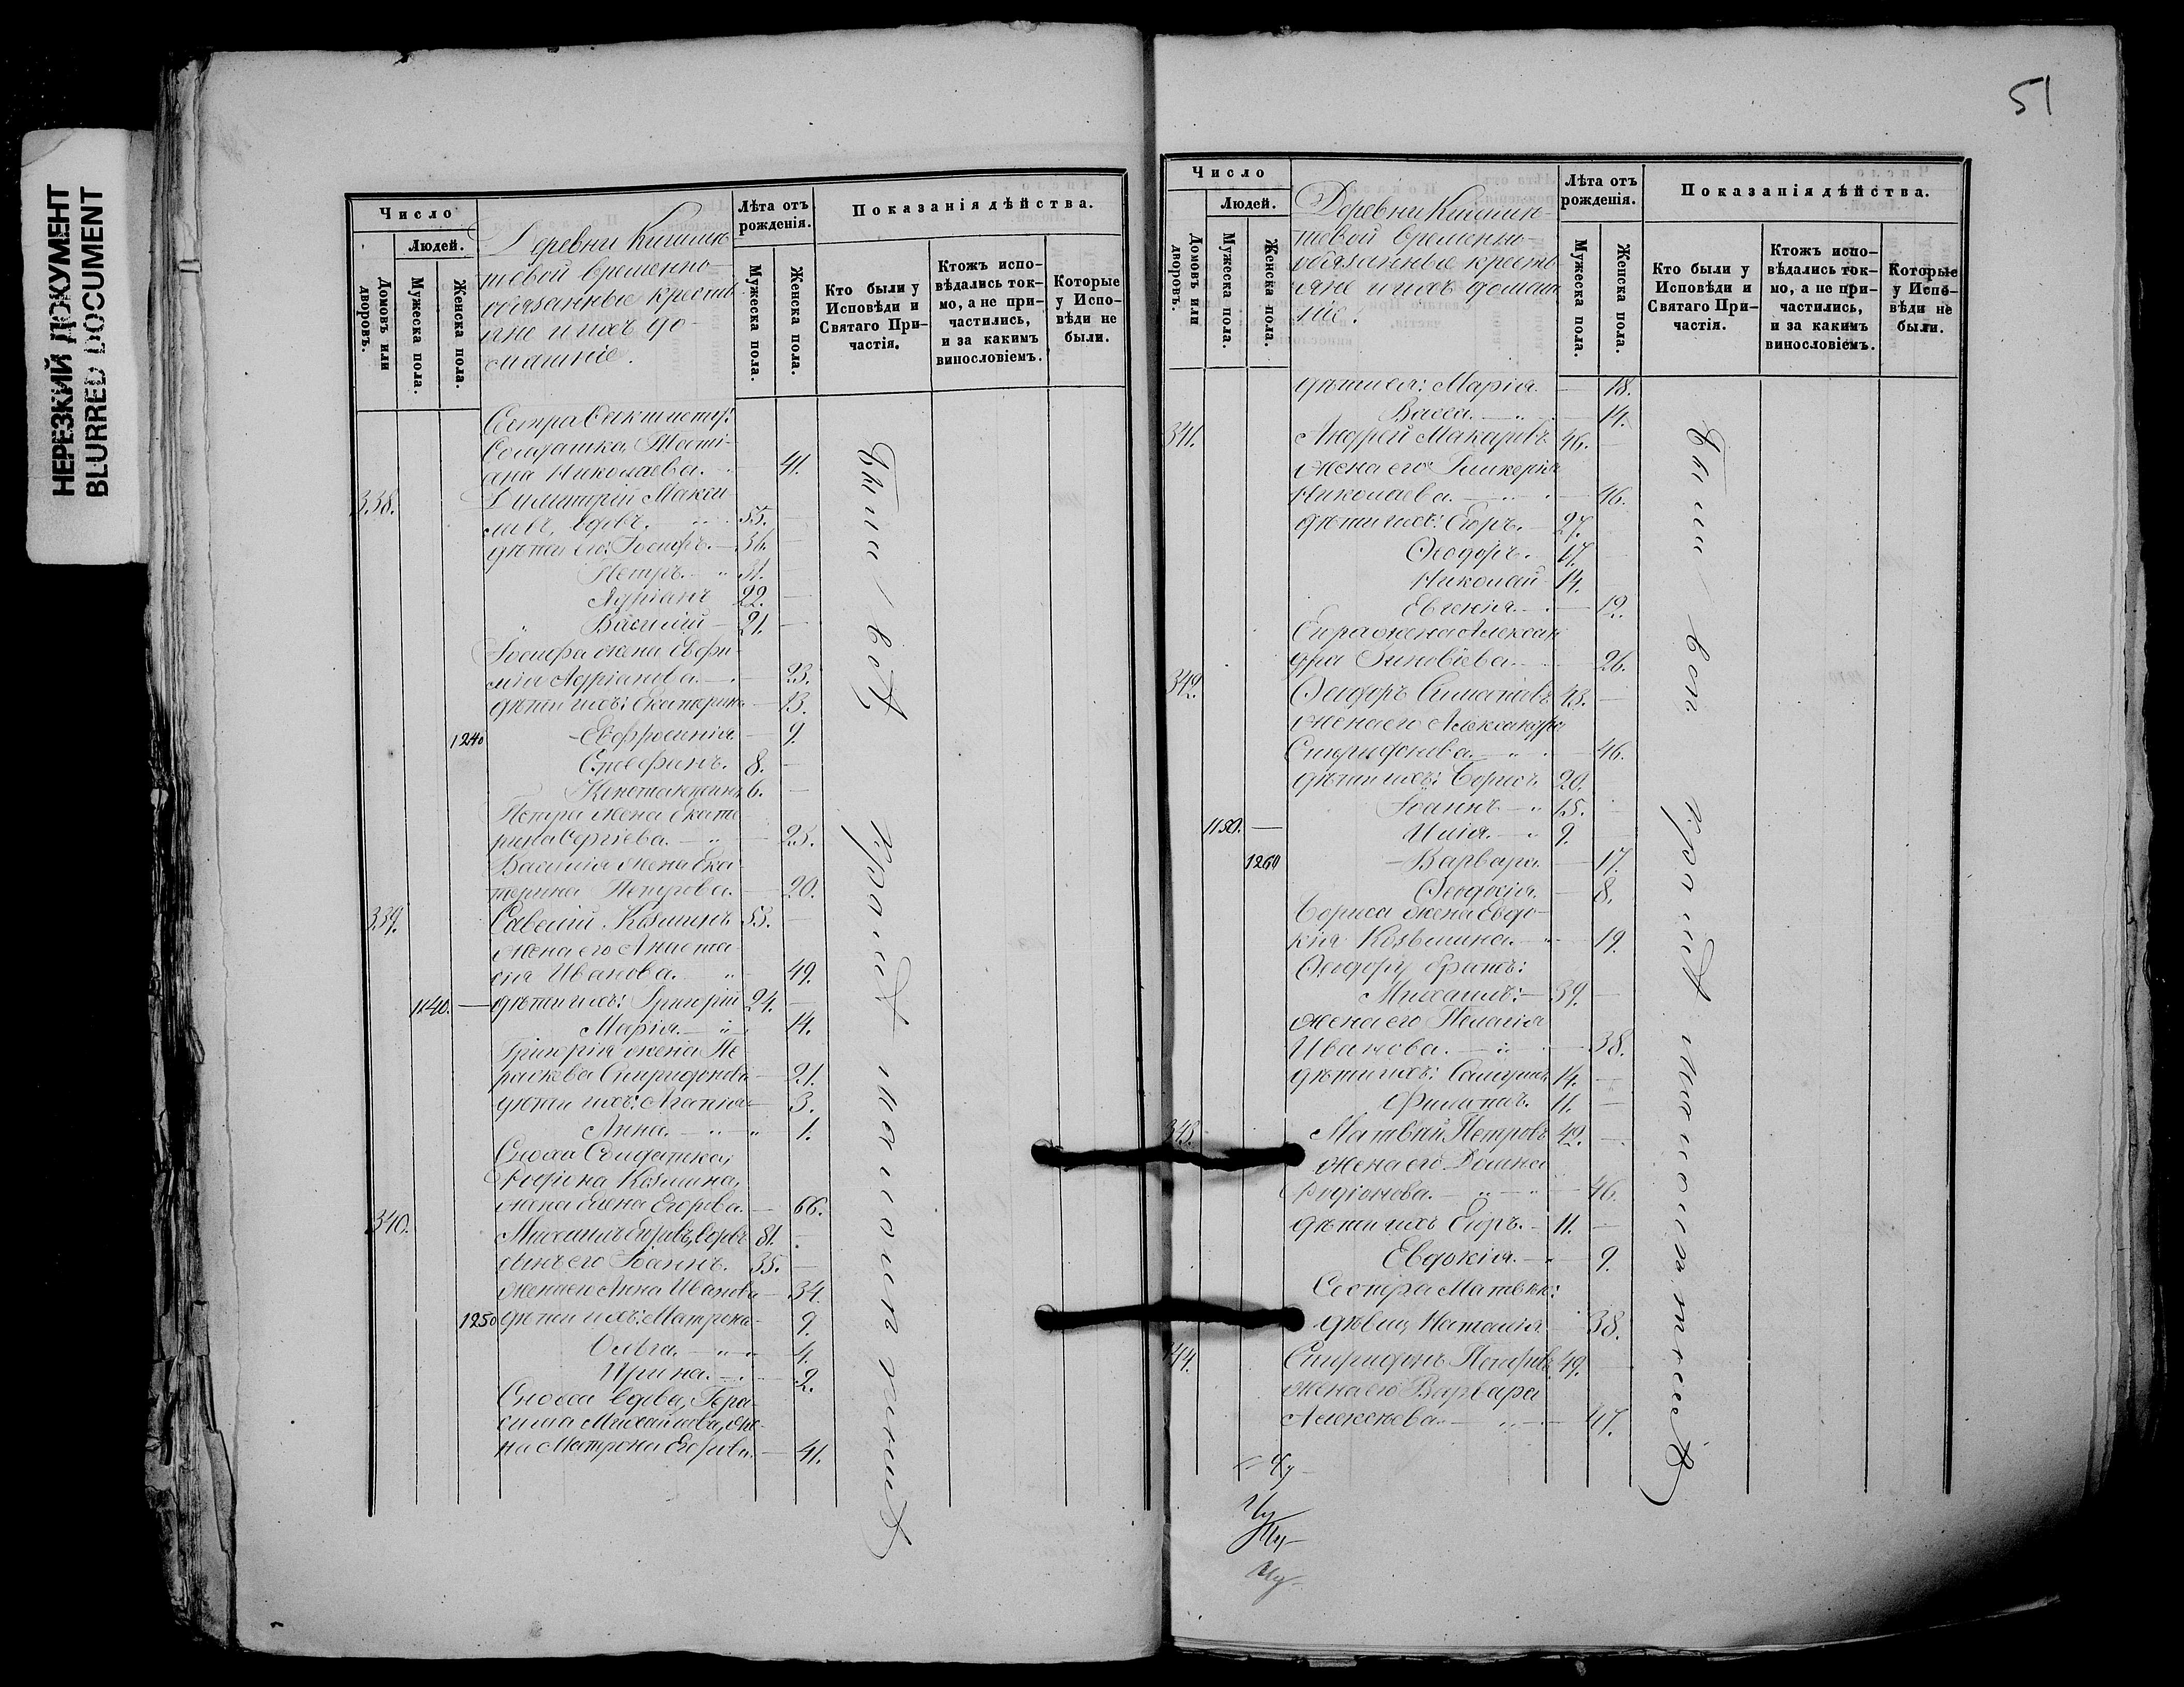 НЕРЕЗКИЙ ДОКУМЕНТ
BLURRED DOCUMENT
Число
Людей.
Домовъ или дворовъ.
Мужеска пола.
Женска пола.
Деревни
временно-
обязанные крестья
яне и ихъ до-
машніе.
Лѣта отъ рожденія.
Мужеска пола.
Женска пола.
Показанія дѣйства.
Кто были у Исповѣди и Святаго Причастія.
Ктожъ исповѣдались токмо, а не причастились, и за какимъ винословіемъ.
Которые у Исповѣди не были.
Сестра
Солдатка,
Николаева. 41.
338. Димитрій Макси
мовъ, вдовъ. 55.
дѣти его: Іосифъ. 34.
Петръ. 31.
Адріанъ 22.
Василій 21.
Іосифа жена Евфи-
мія Адріанова. 23.
дѣти ихъ: Екатерина 13.
1240 Евфросинія 9.
8.
Константинъ 6.
Петра жена Екате
рина Сергіева. 25.
Василія жена Ека-
терина Петрова. 20.
339. Савелій Козминъ 53.
жена его Анаста
сія Иванова. 49.
1140. дѣти ихъ: Григорій 24.
Марія. 14.
Григорія жена Па
раскева Спиридонова 21.
дѣти ихъ: Агапія 3.
Анна. 1.
Сноха Солдатка,
Козмина,
жена Елена Егорова. 66.
340. Михаилъ Егоровъ, вдовъ 81.
сынъ его Іоаннъ. 35.
жена его Анна Иванова 34.
1250 дѣти ихъ: Матрона 9.
Ольга. 4.
Ирина. 2.
Сноха вдова, Гера-
сима Михайлова, же-
на Матрона Егорова. 41.
Были / всѣ
Православные
51
Число
Людей.
Домовъ или дворовъ.
Мужеска пола.
Женска пола.
Деревни
временно-
обязанные кресть
яне и ихъ домаш
ніе.
Лѣта отъ рожденія.
Мужеска пола.
Женска пола.
Показанія дѣйства.
Кто были у Исповѣди и Святаго Причастія.
Ктожъ исповѣдались токмо, а не причастились, и за какимъ винословіемъ.
Которые у Исповѣди не были.
дѣти ея: Марія 18.
Васса. 14.
341. Андрей Макаровъ 46.
жена его Гликерія
Николаева. 46.
дѣти ихъ: Егоръ. 27.
Ѳеодоръ. 17.
Николай 14.
Евгенія. 12.
Егора жена Алексан
дра Зиновіева. 26.
342. Ѳеодоръ 43.
жена его Александра
Спиридонова. 46.
дѣти ихъ: Борисъ 20.
Іоаннъ 15.
1150. Илія. 9.
1260 Варвара. 17.
Ѳеодосія. 8.
Бориса жена Евдо-
кія Козьмина. 19.
Ѳеодору братъ:
Михаилъ: 39.
жена его Пелагія
Иванова. 38.
дѣти ихъ: 14.
Филиппъ. 11.
343. Матвѣй Петровъ 42.
жена его Домна
Родіонова. 46.
дѣти ихъ Егоръ. 11.
Евдокія. 9.
Сестра Матвѣю:
дѣвица, Наталія 38.
344. Спиридонъ Петровъ 49.
жена его Варвара
47.
Были / всѣ